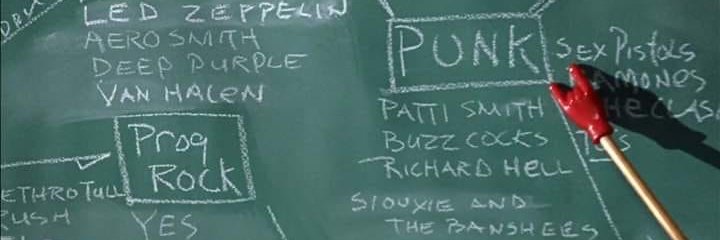 LED ZEPPELIN
AEROSMITH
DEEP PURPLE
VAN HALEN
Prog
Rock
ETHRO TULL
RUSH
YES
PUNK
SEX PISTOLS
AMONES
HE CLAS
PATTI SMITH
BUZZCOCKS
RICHARD HELL
SIOUXIE AND
THE BANSHEES